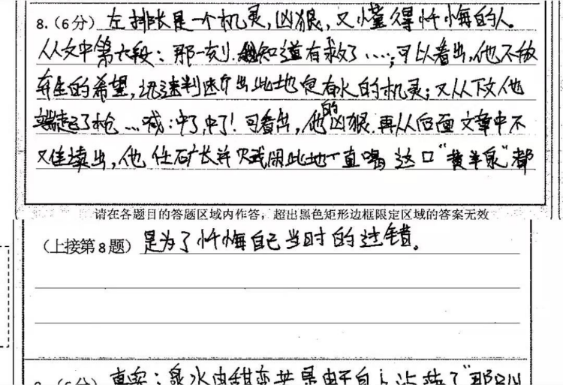 8.(6分) 左排长是一个机灵,凶狠,又懂得忏悔的人。
从文中第六段:那一刻.我知道有救了……,可以看出,他不放
弃生的希望,迅速判断出此地是有水的机灵;又从下文他
端起了枪…喊:中了,中了!可看出,他的凶狠.再从后面文章中不
又佳续出,他任矿长并且说用此地一直喝这口“黄羊泉”都
请在各题目的答题区域内作答,超出黑色矩形边框限定区域的答案无效
(上接第8题) 是为了忏悔自己当时的过错。
(6分) 真实:泉水由甜变苦是由于自上沾染了“那只